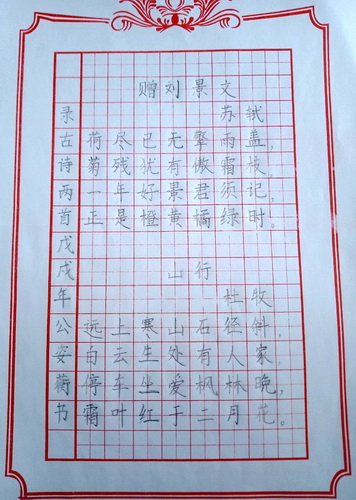 赠刘景文
苏轼
荷尽已无擎雨盖，
菊残犹有傲霜枝。
一年好景君须记，
正是橙黄橘绿时。
山行
杜牧
远上寒山石径斜，
白云生处有人家。
停车坐爱枫林晚，
霜叶红于二月花。
录古诗两首戊戌年公安蔺书